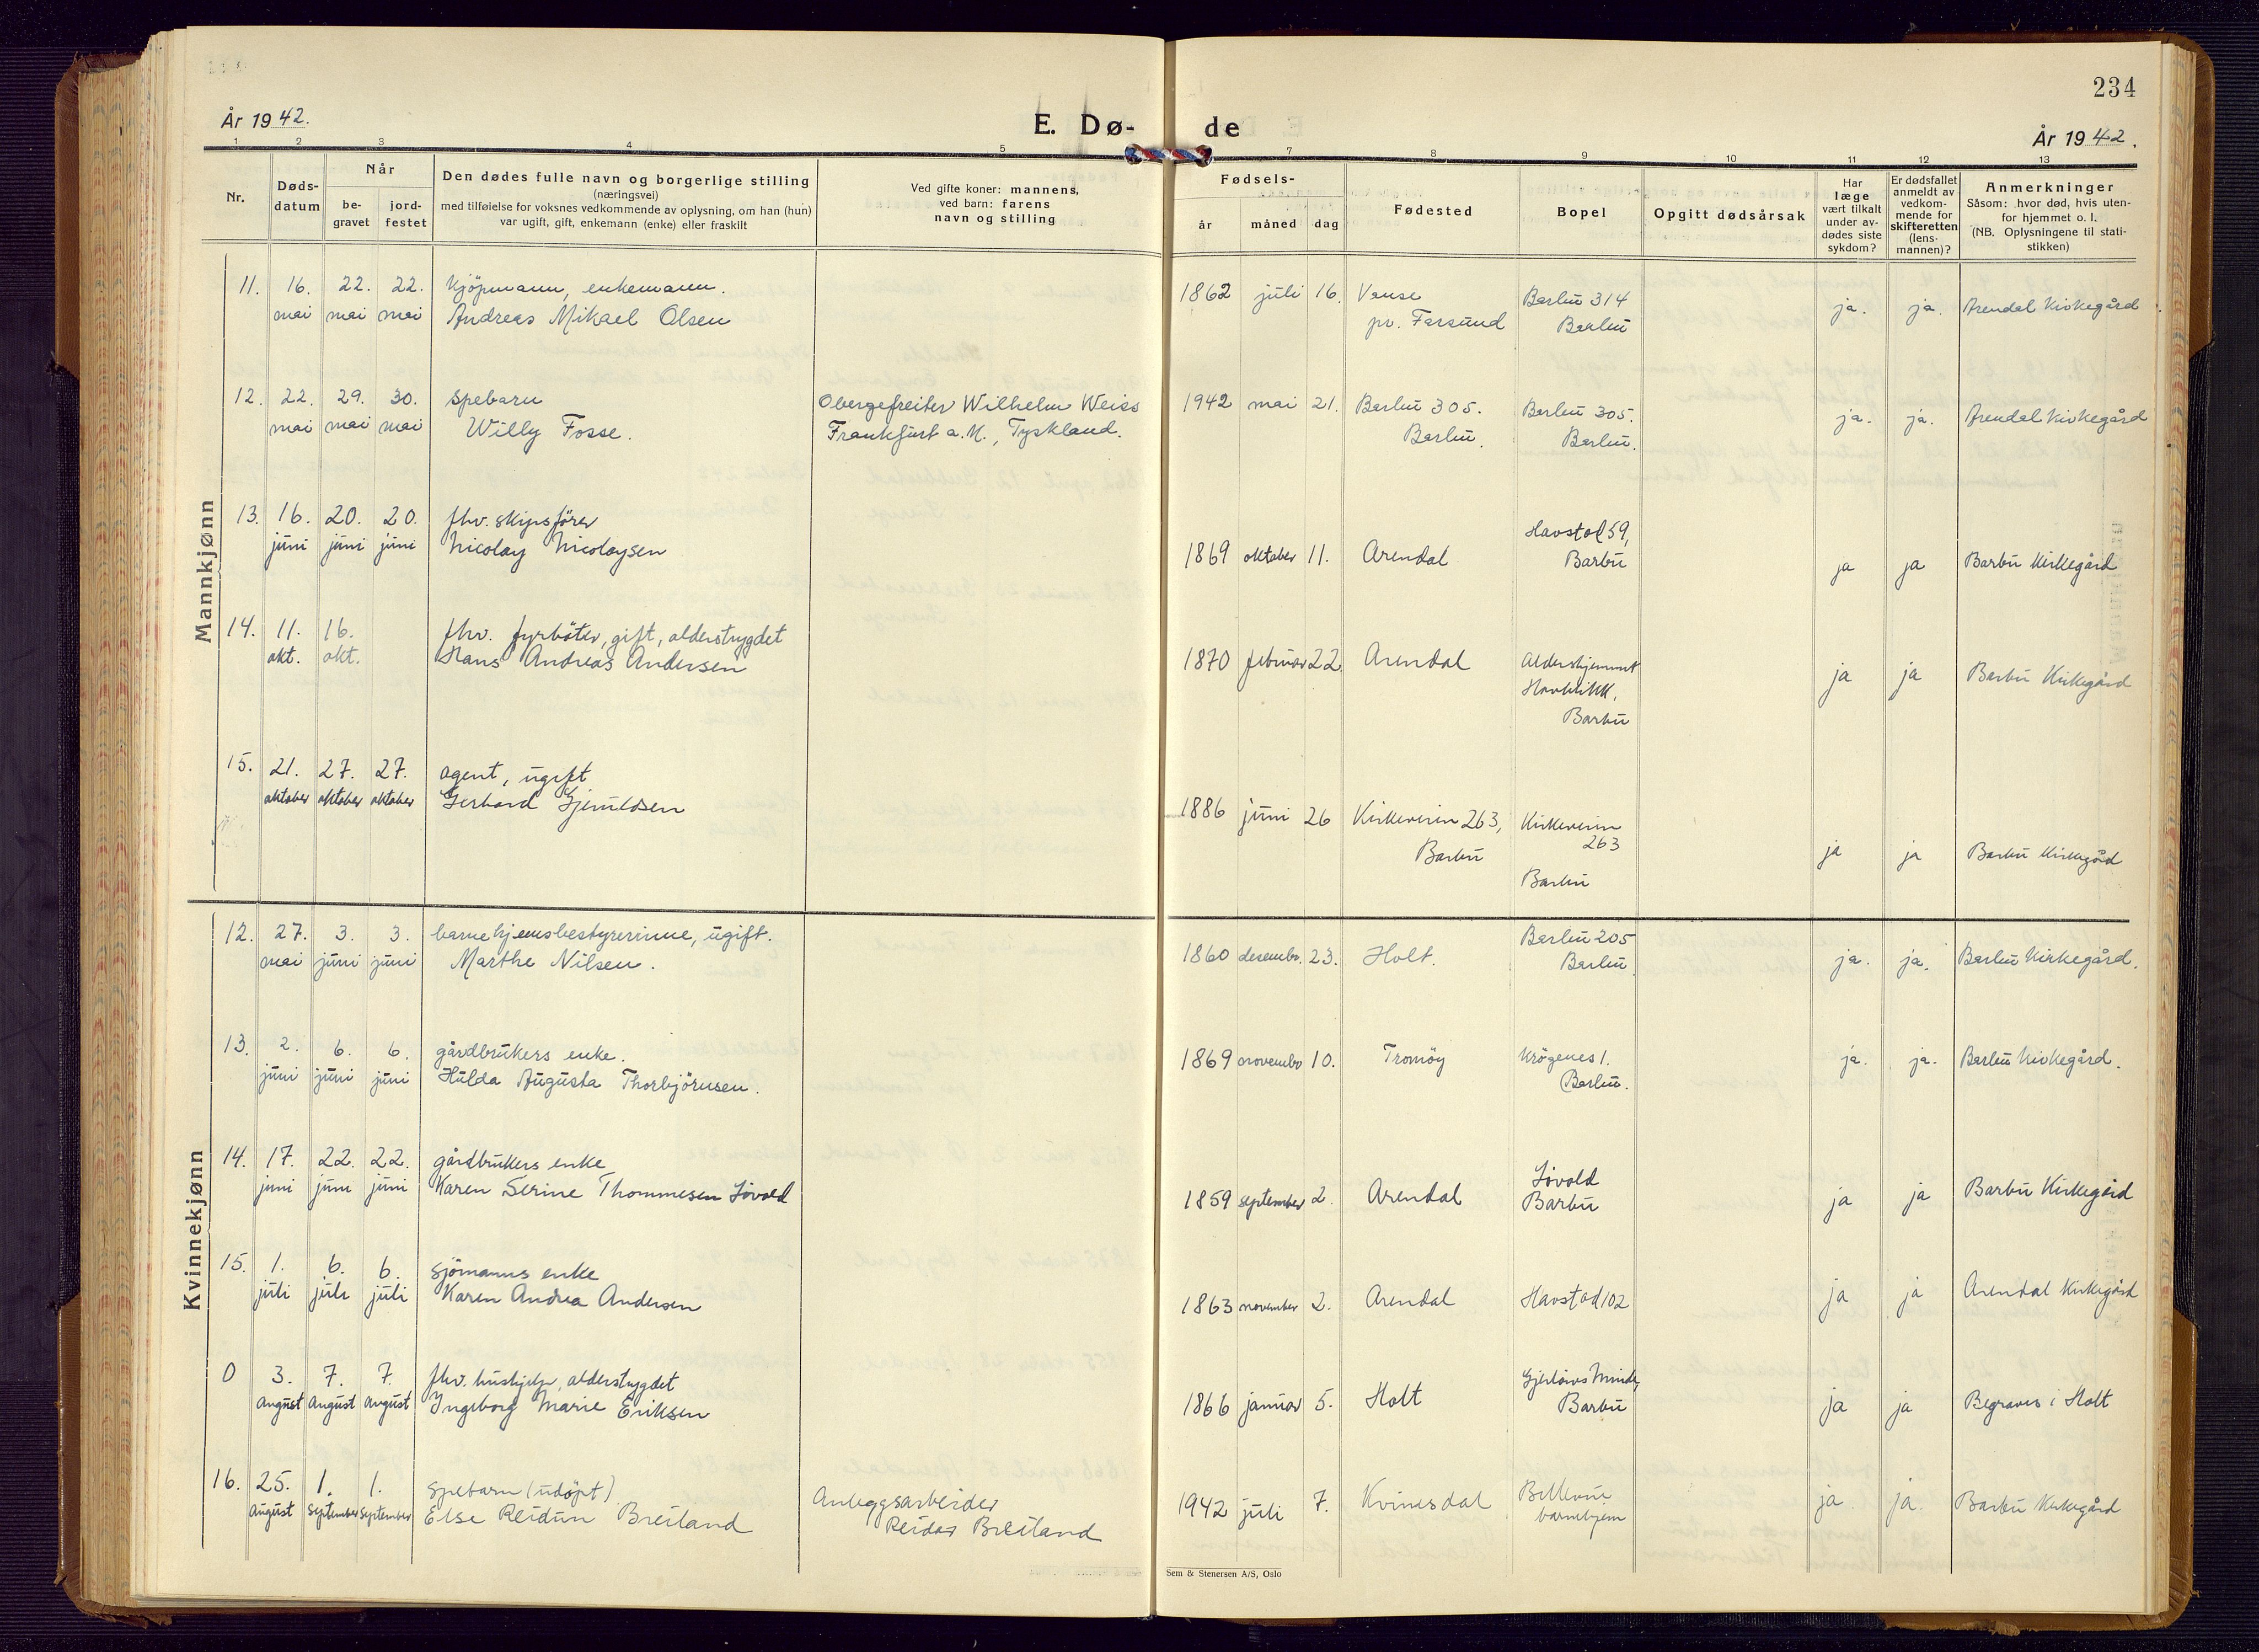 234
År 1942.
E. Dø-
de
År 1942.
1 2 3 4 5 7 8 9 10 11 12 13
Nr.
Døds-
datum
Når
be-
gravet
jord-
festet
Den dødes fulle navn og borgerlige stilling
(næringsvei)
med tilføielse for voksnes vedkommende av oplysning, om han (hun)
var ugift, gift, enkemann (enke) eller fraskilt
Ved gifte koner: mannens,
ved barn: farens
navn og stilling
Fødsels-
år måned dag
Fødested
Bopel
Opgitt dødsårsak
Har
læge
vært tilkalt
under av-
dødes siste
sykdom?
Er dødsfallet
anmeldt av
vedkom-
mende for
skifteretten
(lens-
mannen)?
Anmerkninger
Såsom: hvor død, hvis uten-
for hjemmet o. l.
(NB. Oplysningene til stati-
stikken)
Mannkjønn
11. 16. 22. 22. Kjöpmann, enkemann. 1862 juli 16. Vanse Barbu 314 ja. ja. Arendal Kirkegård
mai mai mai Andreas Mikael Olsen pr. Farsund Barbu
12. 22. 29. 30. spebarn Obergefreiter Wilhelm Weiss 1942 mai 21. Barbu 305. Barbu 305. ja. ja. Arendal Kirkegård
mai mai mai Willy Fosse. Frankfurt a. M., Tyskland. Barbu. Barbu.
13. 16. 20. 20. fhv. skipsförer Havstad 59,
juni juni juni Nicolay Nicolaysen 1869 oktober 11. Arendal Barbu ja ja Barbu Kirkegård
14. 11. 16. fhv. fyrböter, gift, alderstrygdet
okt. okt. Hans Andreas Andersen 1870 februar 22. Arendal Aldershjemmet ja ja Barbu Kirkegård
Havblikk,
Barbu
15. 21. 27. 27. agent, ugift
oktober oktober oktober Gerhard Gjeruldsen 1886 juni 26 Kirkeveien 263, Kirkeveien
263
Barbu Barbu ja ja Barbu Kirkegård
Kvinnekjønn
12. 27. 3. 3. barnehjemsbestyrerinne, ugift. 1860 desembr. 23. Holt. Barbu 205 ja. ja. Barbu Kirkegård.
mai juni juni Marthe Nilsen. Barbu.
13. 2. 6. 6. gårdbrukers enke. 1869 novembr 10. Tromöy Krögenes 1. ja. ja. Barbu Kirkegård.
juni juni juni Hulda Augusta Thorbjörnsen. Barbu.
14. 17. 22. 22. gårdbrukers enke Lövold
juni juni juni Karen Serine Thommesen Lövold 1859 september 2. Arendal Barbu ja ja Barbu Kirkegård
15. 1. 6. 6. sjömanns enke
juli juli juli Karen Andrea Andersen 1863 november 2. Arendal Havstad 102 ja ja Arendal Kirkegård
0 3. 7. 7. fhv. hushjelp, alderstrygdet Minde,
August August August Ingeborg Marie Eriksen 1866 januar 5. Holt Barbu ja ja Begraves i Holt
16. 25. 1. 1. spebarn (udöpt) Anleggsarbeider 1942 juli 7. Kvinesdal Bellevue ja ja. Barbu Kirkegård
August september september Else Reidun Breiland Reidar Breiland barnehjem
Sem & Stenersen A/S, Oslo